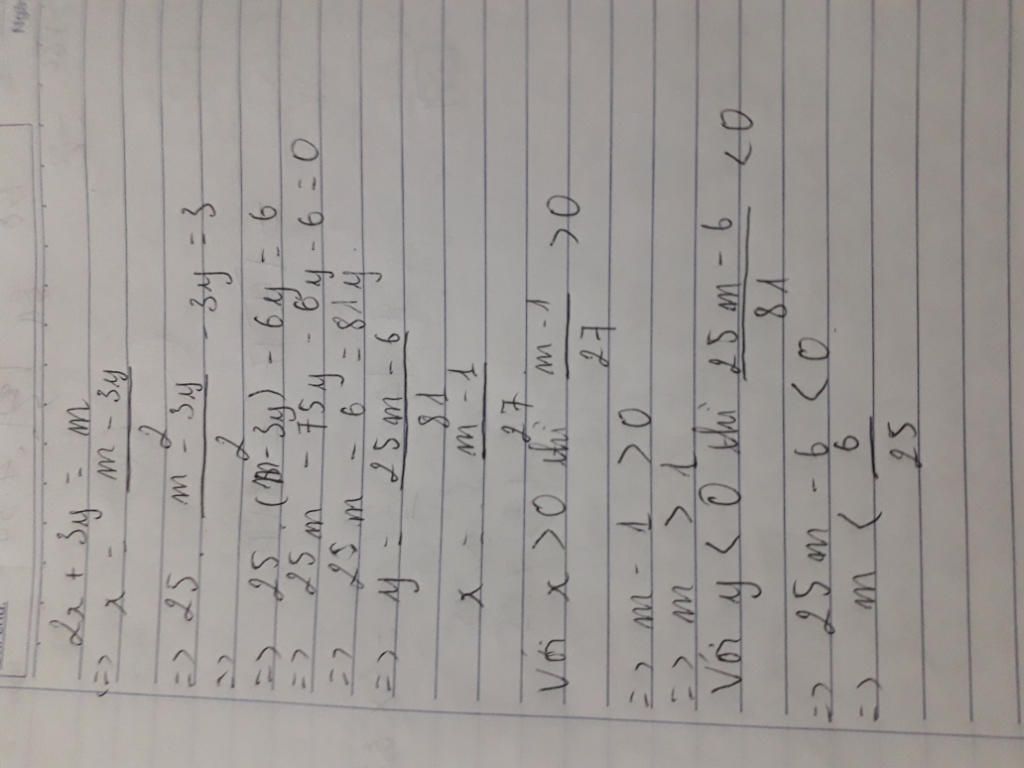 2x + 3y = m
=> x = \frac{m - 3y}{2}
=> 25 . \frac{m - 3y}{2} - 3y = 3
=>
=> 25 (m - 3y) - 6y = 6
=> 25m - 75y - 6y - 6 = 0
=> 25m - 6 = 81y
=> y = \frac{25m - 6}{81}
x = \frac{m - 1}{27}
Với x > 0 thì \frac{m - 1}{27} > 0
=> m - 1 > 0
=> m > 1
Với y < 0 thì \frac{25m - 6}{81} < 0
=> 25m - 6 < 0
=> m < \frac{6}{25}